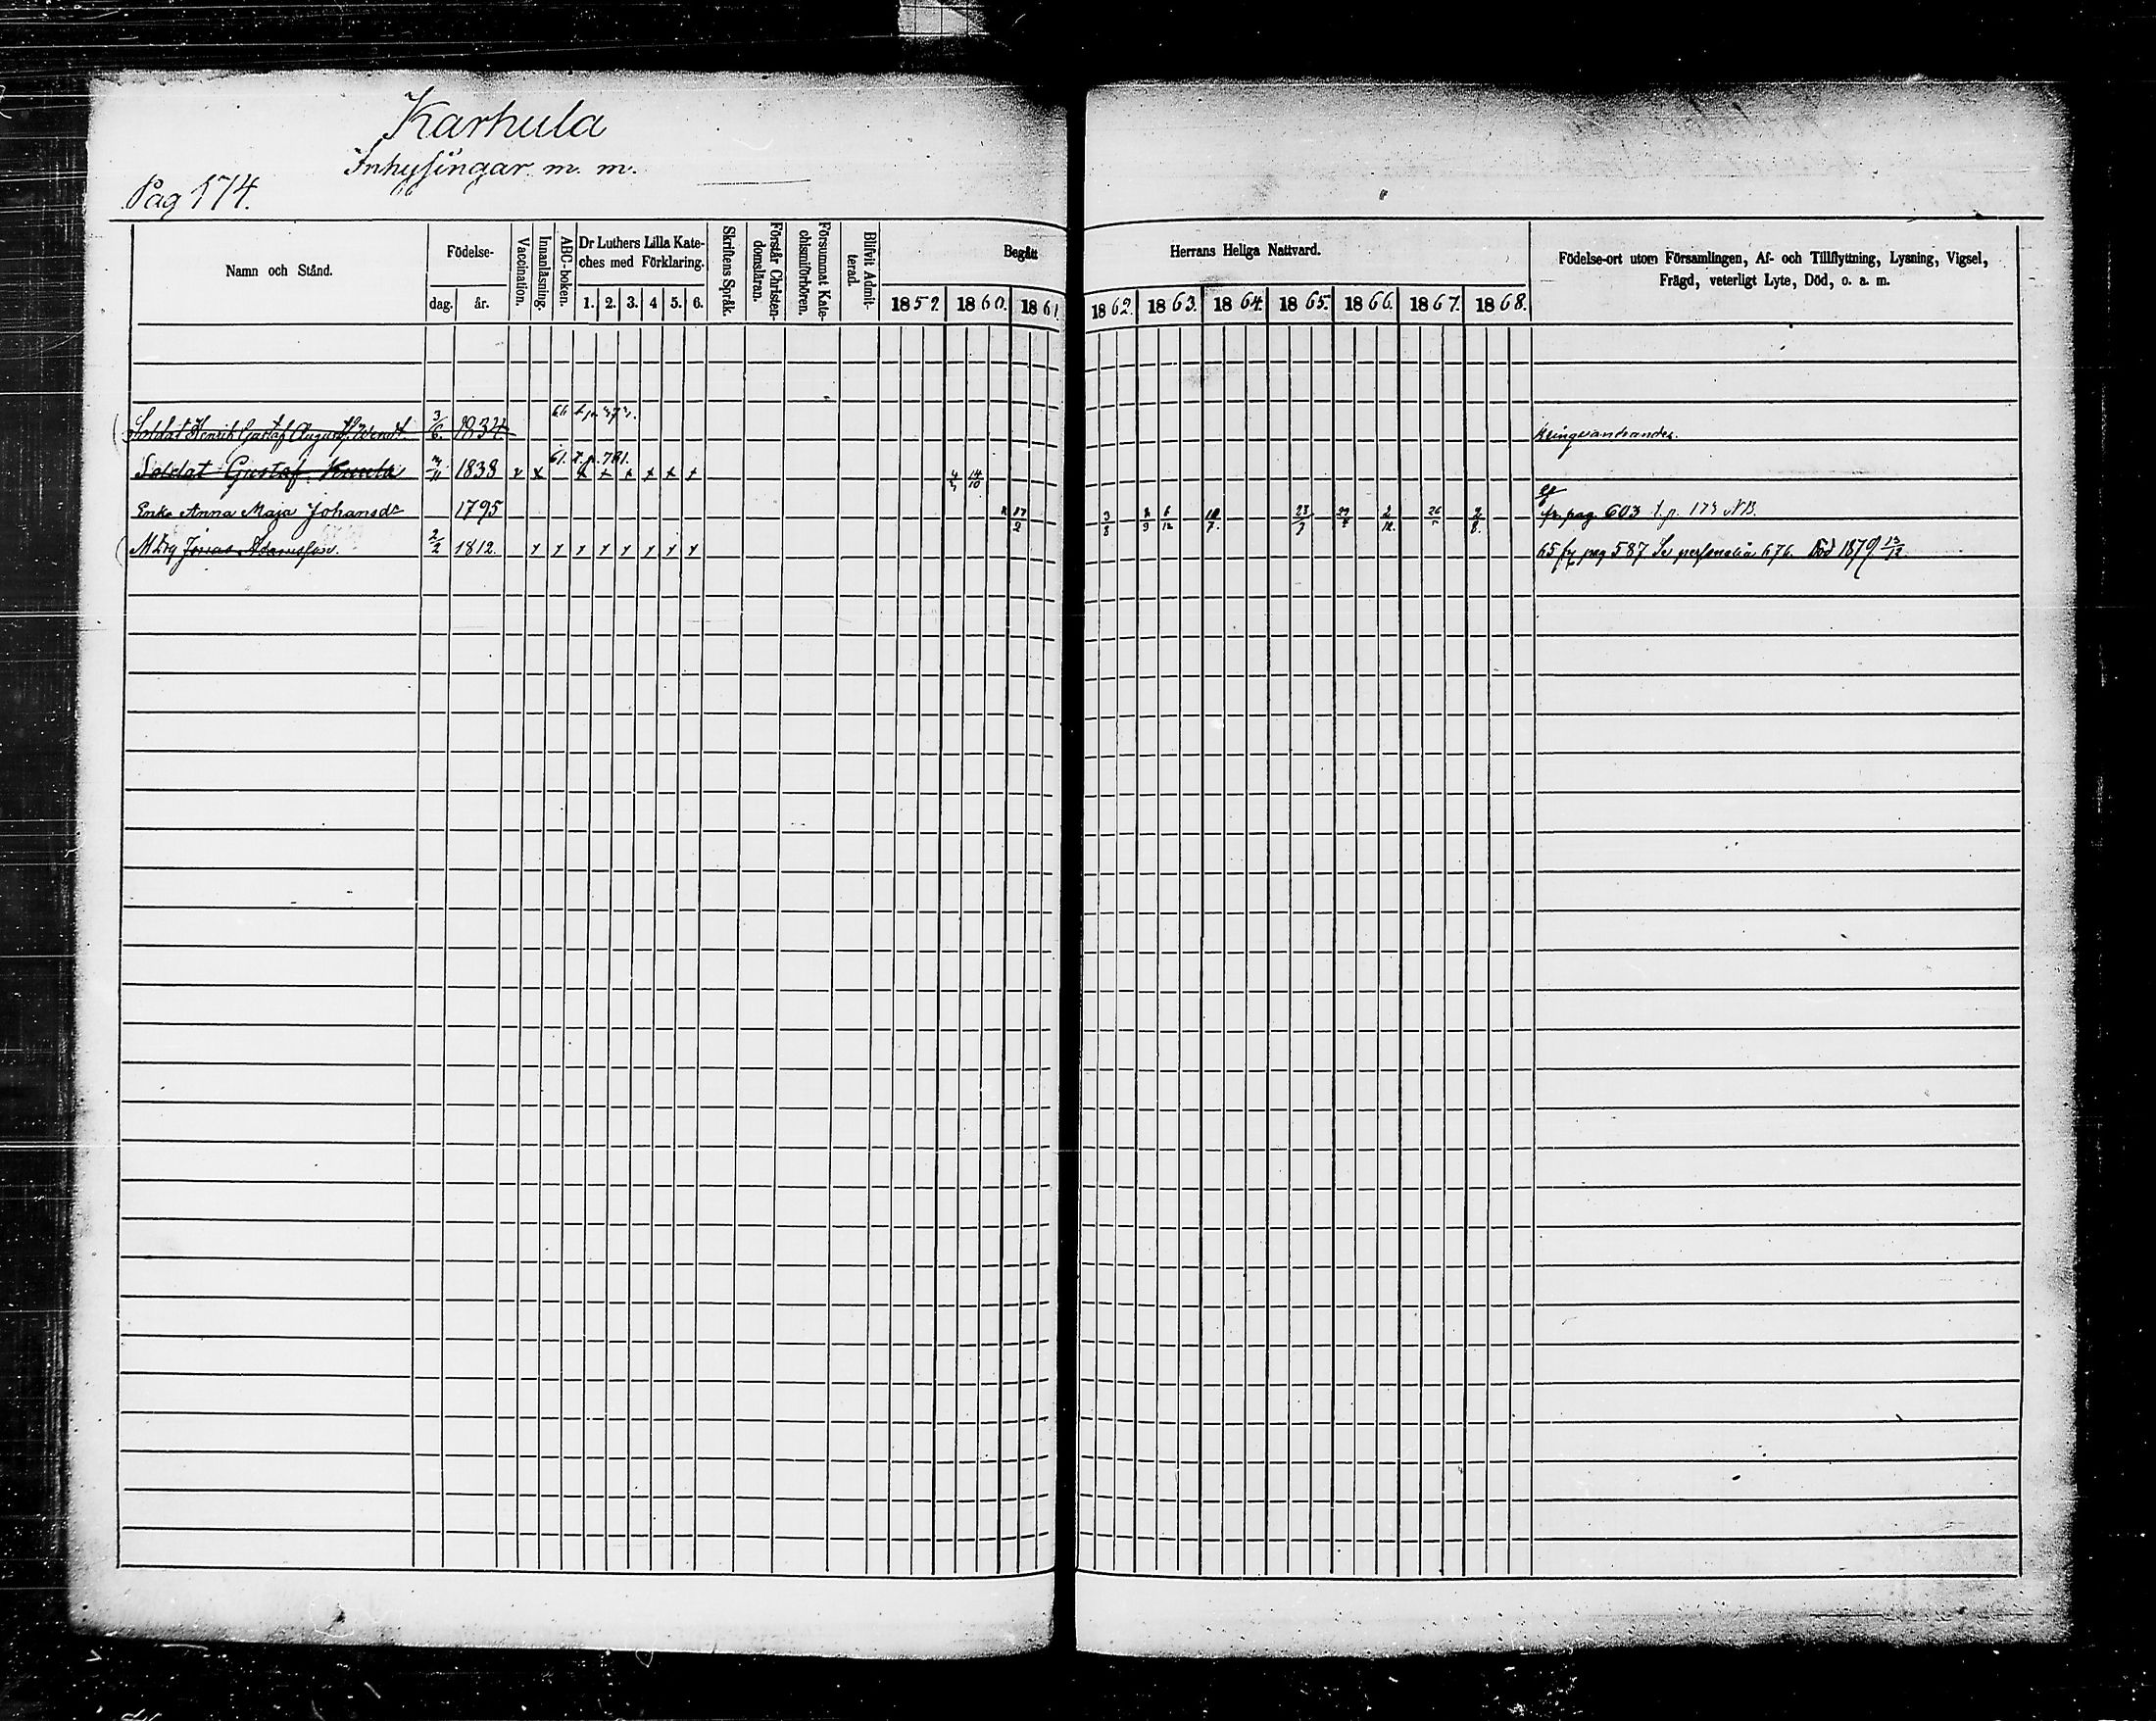 Karhula
Inhysingar m. m.
Pag 174.
Namn och Stånd.
Födelse-
dag. år.
Vaccination.
Innanläsning.
ABC-boken.
Dr Luthers Lilla Kate-
ches med Förklaring.
1. 2. 3. 4 5. 6.
Skriftens Språk.
Förstår Christen-
domsläran.
Försummat Kate-
chismiförhören.
Blifvit Admit-
terad.
Begått Herrans Heliga Nattvard.
1859. 1860. 1861. 1862. 1863. 1864. 1865. 1866. 1867. 1868.
Födelse-ort utom Församlingen, Af- och Tillflyttning, Lysning, Vigsel,
Frägd, veterligt Lyte, Död, o. a. m.
Soldat Henrik Gustaf August 3/6. 1834 kringvandrande.
61. t.p. 781.
Soldat Gustaf 1838 x x x x x x x x 14/10
Enke Anna Maja Johansdr 1795 3/8 10/7. 23/7 2/12. 2/8. fr. pag 603 t.p. 173 NB.
Jonas Adamsson. 2/2 1812. 65 fr pag 587 Se personalia 676. Död 1879 13/12